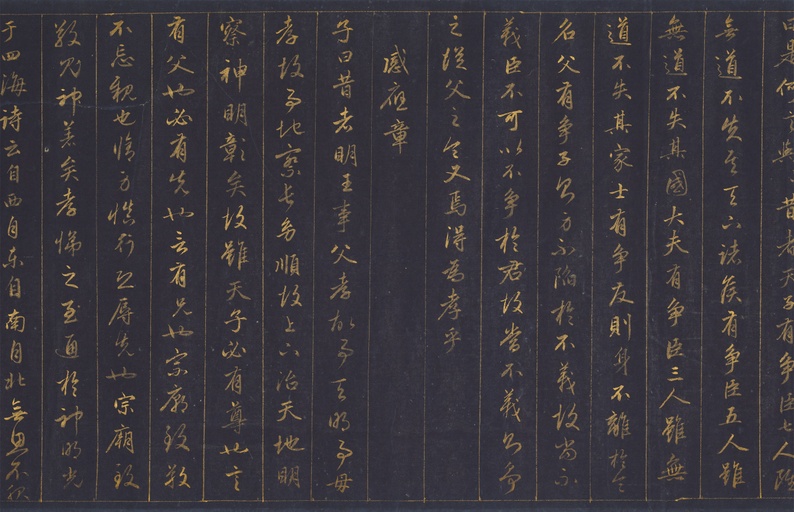 曰是何言與昔者天子有爭臣七人雖
無道不失其天下諸侯有爭臣五人雖
無道不失其國大夫有爭臣三人雖無
道不失其家士有爭友則身不離於令
名父有爭子則身不陷於不義故當不
義臣不可以不爭於君故當不義則爭
之從父之令又焉得為孝乎
感應章
子曰昔者明王事父孝故事天明事母
孝故事地察長幼順故上下治天地明
察神明彰矣故雖天子必有尊也言
有父也必有先也言有兄也宗廟致敬
不忘親也脩身慎行恐辱先也宗廟致
敬鬼神著矣孝悌之至通於神明光
于四海詩云自西自東自南自北無思不服